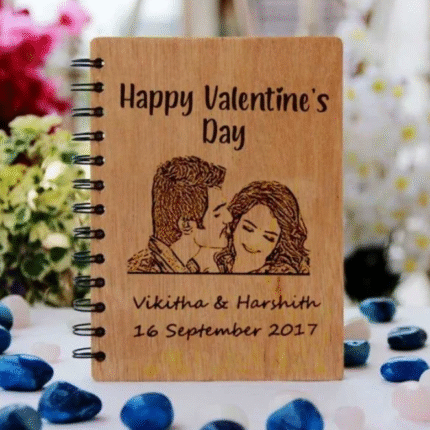 Happy Valentine's
Day
Vikitha & Harshith
16 September 2017